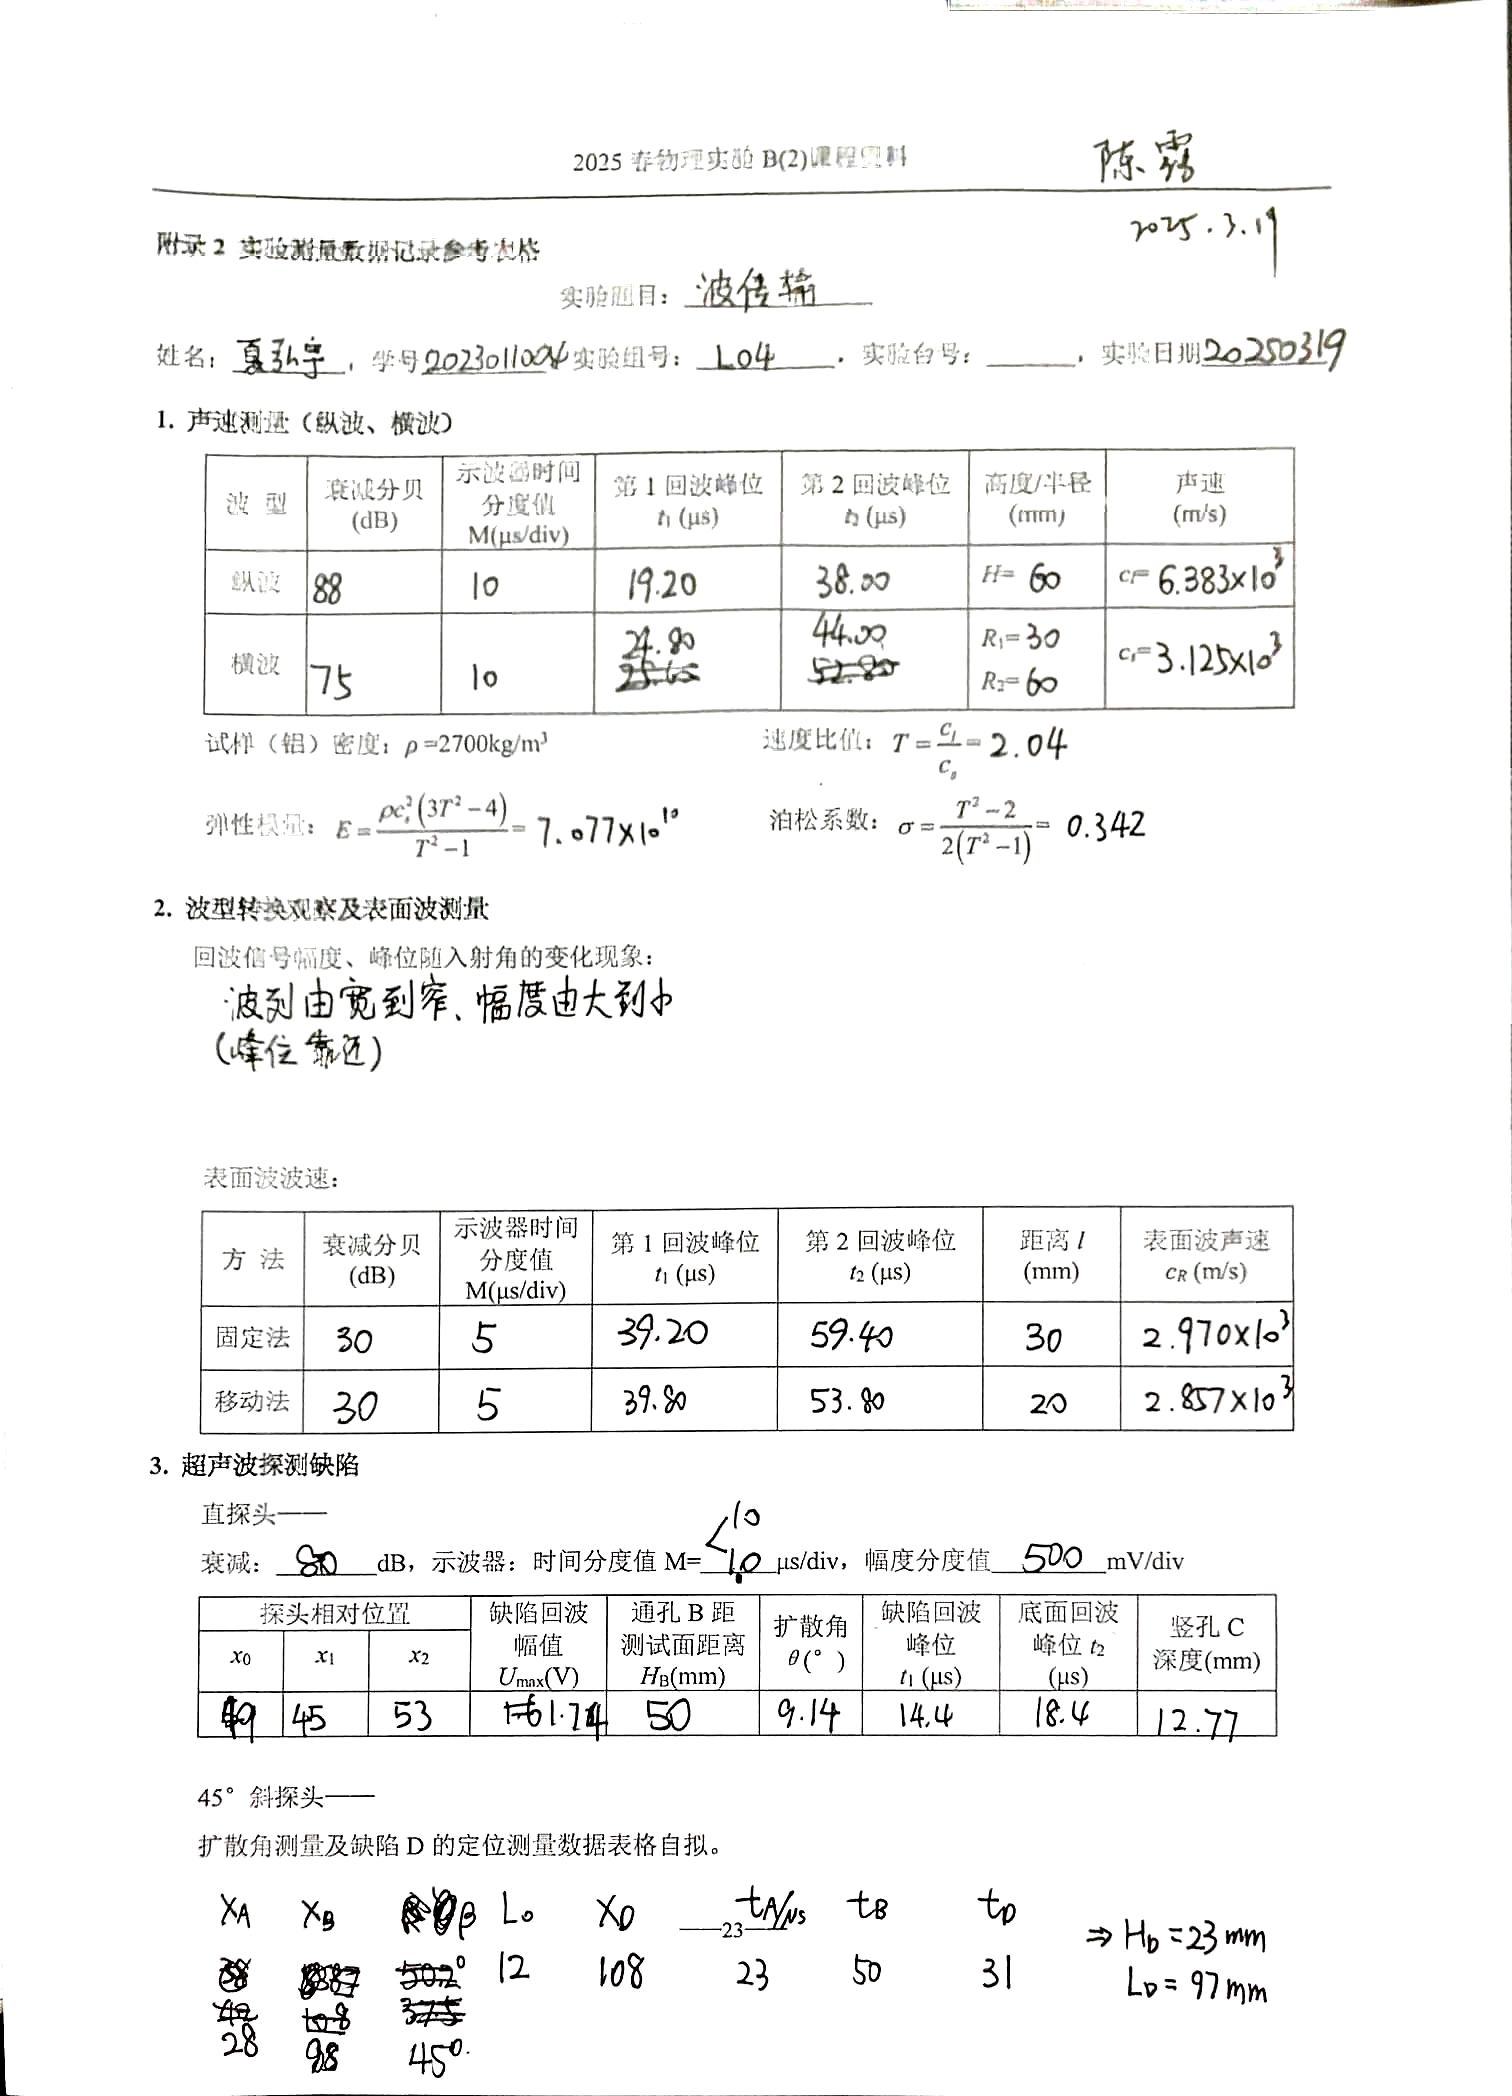 2025 春物理实验 B(2)课程资料
陈霧
2025.3.19
附录 2 实验测量数据记录参考表格
实验题目: 波传输
姓名: 夏弘宇, 学号 2023011004 实验组号: L04 , 实验台号: , 实验日期 20250319
1. 声速测量（纵波、横波）
波 型 衰减分贝 (dB) 示波器时间分度值 M(μs/div) 第 1 回波峰位 t₁ (μs) 第 2 回波峰位 t₂ (μs) 高度/半径 (mm) 声速 (m/s)
纵波 88 10 19.20 38.00 H= 60 cₗ= 6.383×10³
横波 75 10 24.80 44.00 R₁= 30 R₂= 60 cₛ= 3.125×10³
试样（铝）密度: ρ =2700kg/m³ 速度比值: T = cₗ/cₛ = 2.04
弹性模量: E = ρcₛ²(3T²−4)/(T²−1) = 7.077×10¹⁰ 泊松系数: σ = (T²−2)/(2(T²−1)) = 0.342
2. 波型转换观察及表面波测量
回波信号幅度、峰位随入射角的变化现象:
波列由宽到窄、幅度由大到小
(峰位靠近)
表面波波速:
方 法 衰减分贝 (dB) 示波器时间分度值 M(μs/div) 第 1 回波峰位 t₁ (μs) 第 2 回波峰位 t₂ (μs) 距离 l (mm) 表面波声速 c_R (m/s)
固定法 30 5 39.20 59.40 30 2.970×10³
移动法 30 5 39.80 53.80 20 2.857×10³
3. 超声波探测缺陷
直探头——
10
衰减: 80 dB，示波器：时间分度值 M= 1.0 μs/div，幅度分度值 500 mV/div
探头相对位置 缺陷回波幅值 Umax(V) 通孔 B 距测试面距离 H_B(mm) 扩散角 θ(°) 缺陷回波峰位 t₁ (μs) 底面回波峰位 t₂ (μs) 竖孔 C 深度(mm)
x₀ x₁ x₂
49 45 53 1.74 50 9.14 14.4 18.4 12.77
45° 斜探头——
扩散角测量及缺陷 D 的定位测量数据表格自拟。
x_A x_B β L₀ x_D t_A/μs t_B t_D
——23——
⇒ H_D = 23 mm
12 108 23 50 31
L_D = 97 mm
28 98 45°